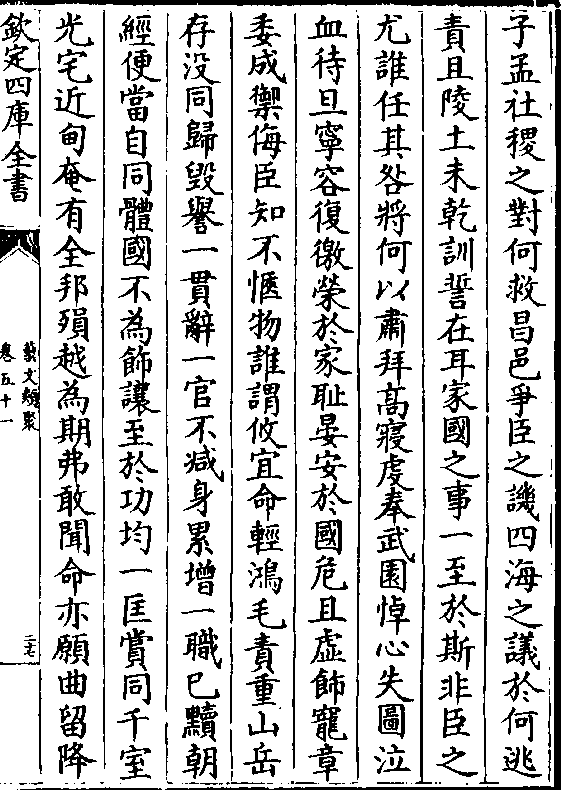 子孟社稷之對何救昌邑爭臣之譏四海之議於何逃
責且陵土未乾訓誓在耳家國之事一至於斯非臣之
尤誰任其咎將何以肅拜高寢虔奉武園悼心失圖泣
血待旦寧容復徼榮於家耻晏安於國危且虛飾寵章
委成禦侮臣知不愜物誰謂攸宜命輕鴻毛責重山岳
存没同歸毀譽一貫辭一官不減身累增一職已黷朝
經便當自同體國不為飾讓至於功均一匡賞同千室
光宅近甸奄有全邦殞越為期弗敢聞命亦願曲留降
欽定四庫全書
藝文類聚
卷五十一
二七